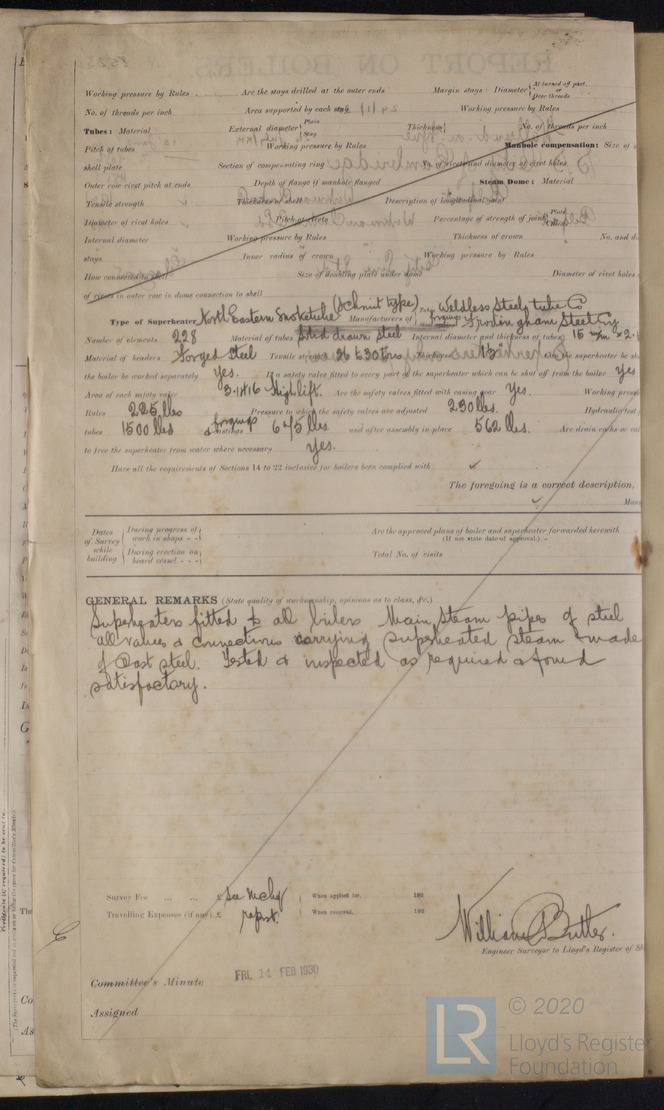 Working pressure by Rules Are the stays drilled at the outer ends Margin stays: Diameter { At turned off part, or Over threads
No. of threads per inch Area supported by each stay Working pressure by Rules
Tubes: Material External diameter { Plain Stay Thickness { No. of threads per inch
Pitch of tubes Working pressure by Rules Manhole compensation: Size of
shell plate Section of compensating ring No. of rivets and diameter of rivet holes
Outer row rivet pitch at ends Depth of flange if manhole flanged Steam Dome: Material
Tensile strength Thickness of shell Description of longitudinal joint
Diameter of rivet holes Pitch of rivets Percentage of strength of joint { Plate Rivets
Internal diameter Working pressure by Rules Thickness of crown No. and
stays Inner radius of crown Working pressure by Rules
How connected to shell Size of doubling plate under dome Diameter of rivet holes
of rivets in outer row in dome connection to shell
Type of Superheater North Eastern Smoketube (Schmit type) Manufacturers of { Tubes forgings Weldless Steel tube Co Frodingham Steel Coy
Number of elements 228 Material of tubes Solid drawn Steel Internal diameter and thickness of tubes 15 m/m
Material of headers Forged Steel Tensile strength 26 to 30 tons Thickness Can the superheater be
the boiler be worked separately Yes. Is a safety valve fitted to every part of the superheater which can be shut off from the boiler Yes
Area of each safety valve Highlift. Are the safety valves fitted with easing gear Yes. Working
Rules 225 lbs Pressure to which the safety valves are adjusted 230 lbs. Hydraulic test
tubes 1500 lbs forgings 675 lbs and after assembly in place 562 lbs. Are drain cocks or
to free the superheater from water where necessary yes.
Have all the requirements of Sections 14 to 22 inclusive for boilers been complied with ✓
The foregoing is a correct description,
Dates of Survey while building { During progress of work in shops - - { During erection on board vessel - - - Are the approved plans of boiler and superheater forwarded herewith (If not state date of approval.)
Total No. of visits
GENERAL REMARKS (State quality of workmanship, opinions as to class, &c.)
Superheaters fitted to all boilers Main Steam pipes of steel
all valves & connections carrying superheated steam made
of Cast steel. Tested & inspected as required & found
satisfactory.
Survey Fee ... ... £ See Mchy When applied for, 192
Travelling Expenses (if any) £ repst. When received, 192
William Butler.
Engineer Surveyor to Lloyd's Register of
Committee's Minute FRI. 14 FEB 1930
Assigned
© 2020
LR Lloyd's Register
Foundation